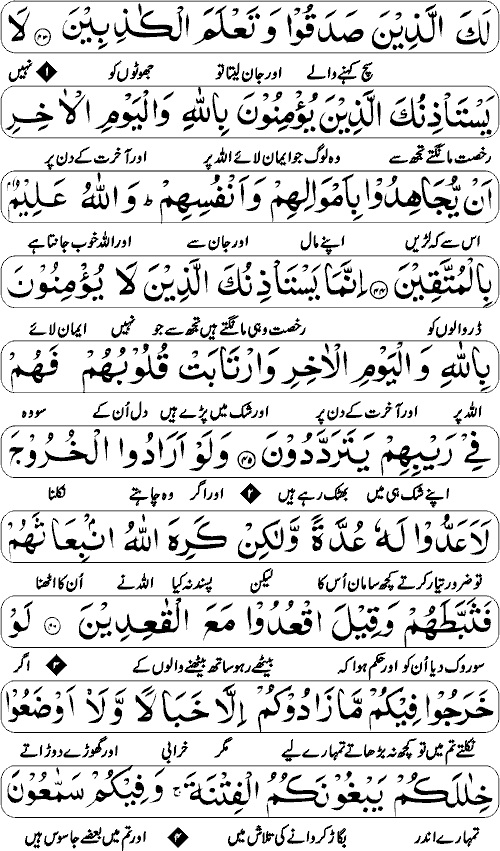 لَكَ الَّذِيْنَ صَدَقُوْا وَ تَعْلَمَ الْكٰذِبِيْنَ ﴿۴۳﴾ لَا
سچ کہنے والے اور جان لیتا تو جھوٹوں کو ۱ نہیں
يَسْتَاْذِنُكَ الَّذِيْنَ يُؤْمِنُوْنَ بِاللّٰهِ وَالْيَوْمِ الْاٰخِرِ
رخصت مانگتے تجھ سے وہ لوگ جو ایمان لائے اللہ پر اور آخرت کے دن پر
اَنْ يُّجَاهِدُوْا بِاَمْوَالِهِمْ وَاَنْفُسِهِمْ ؕ وَاللّٰهُ عَلِيْمٌۢ
اس سے کہ لڑیں اپنے مال اور جان سے اور اللہ خوب جانتا ہے
بِالْمُتَّقِيْنَ ﴿۴۴﴾ اِنَّمَا يَسْتَاْذِنُكَ الَّذِيْنَ لَا يُؤْمِنُوْنَ
ڈر والوں کو رخصت وہی مانگتے ہیں تجھ سے جو نہیں ایمان لائے
بِاللّٰهِ وَ الْيَوْمِ الْاٰخِرِ وَارْتَابَتْ قُلُوْبُهُمْ فَهُمْ
اللہ پر اور آخرت کے دن پر اور شک میں پڑے ہیں دل اُن کے سو وہ
فِيْ رَيْبِهِمْ يَتَرَدَّدُوْنَ ﴿۴۵﴾ وَلَوْ اَرَادُوا الْخُرُوْجَ
اپنے شک ہی میں بھٹک رہے ہیں ۲ اور اگر وہ چاہتے نکلنا
لَاَعَدُّوْا لَهٗ عُدَّةً وَّلٰكِنْ كَرِهَ اللّٰهُ انْۢبِعَاثَهُمْ
تو ضرور تیار کرتے کچھ سامان اُس کا لیکن پسند نہ کیا اللہ نے اُن کا اٹھنا
فَثَبَّطَهُمْ وَقِيْلَ اقْعُدُوْا مَعَ الْقٰعِدِيْنَ ﴿۴۶﴾ لَوْ
سو روک دیا اُن کو اور حکم ہوا کہ بیٹھے رہو ساتھ بیٹھنے والوں کے ۳ اگر
خَرَجُوْا فِيْكُمْ مَّا زَادُوْكُمْ اِلَّا خَبَالًا وَّلَا۟اَوْضَعُوْا
نکلتے تم میں تو کچھ نہ بڑھاتے تمہارے لیے مگر خرابی اور گھوڑے دوڑاتے
خِلٰلَكُمْ يَبْغُوْنَكُمُ الْفِتْنَةَ ۚ وَفِيْكُمْ سَمّٰعُوْنَ
تمہارے اندر بگاڑ کروانے کی تلاش میں ۴ اور تم میں بعضے جاسوس ہیں